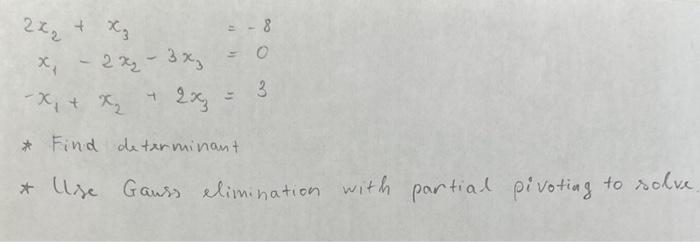 2x₂ + x₃ = -8
x₁ - 2x₂ - 3x₃ = 0
-x₁ + x₂ + 2x₃ = 3
* Find determinant
* Use Gauss elimination with partial pivoting to solve.